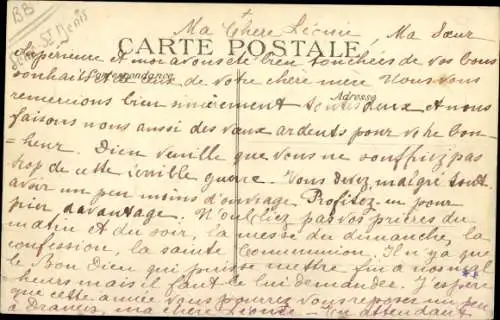 BB
St Denis
+
Ma Chère Léonie, Ma Sœur
CARTE POSTALE
et moi avons été bien touchées de vos bons
souhaits et de ceux de votre chère mère. Nous vous
Correspondance
remercions bien sincèrement toutes deux et nous
Adresse
faisons nous aussi des vœux ardents pour votre bon
=heur. Dieu veuille que vous ne souffriez pas
trop de cette terrible guerre. Vous devez, malgré tout
avoir un peu moins d'ouvrage. Profitez-en pour
prier davantage. N'oubliez pas vos prières du
matin et du soir, la messe du dimanche, la
confession, la sainte Communion. Il n'y a que
le Bon Dieu qui puisse mettre fin à nos mal
heurs mais il faut le lui demander. J'espère
que cette année vous pourrez vous reposer un peu
à Drancy, ma chère Léonie - En attendant